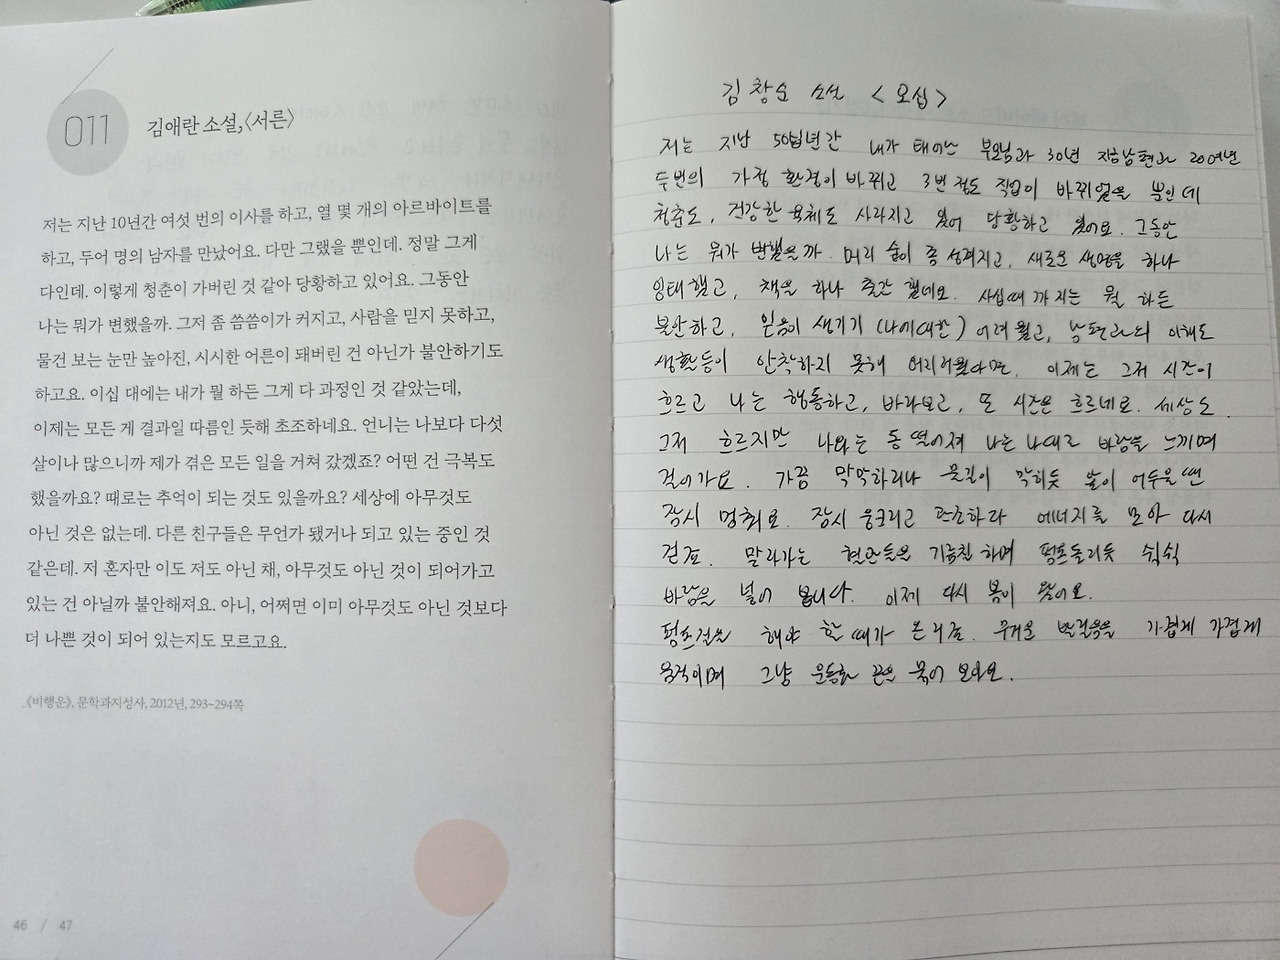 011
김애란 소설,〈서른〉
저는 지난 10년간 여섯 번의 이사를 하고, 열 몇 개의 아르바이트를
하고, 두어 명의 남자를 만났어요. 다만 그랬을 뿐인데. 정말 그게
다인데. 이렇게 청춘이 가버린 것 같아 당황하고 있어요. 그동안
나는 뭐가 변했을까. 그저 좀 씀씀이가 커지고, 사람을 믿지 못하고,
물건 보는 눈만 높아진, 시시한 어른이 돼버린 건 아닌가 불안하기도
하고요. 이십 대에는 내가 뭘 하든 그게 다 과정인 것 같았는데,
이제는 모든 게 결과일 따름인 듯해 초조하네요. 언니는 나보다 다섯
살이나 많으니까 제가 겪은 모든 일을 거쳐 갔겠죠? 어떤 건 극복도
했을까요? 때로는 추억이 되는 것도 있을까요? 세상에 아무것도
아닌 것은 없는데. 다른 친구들은 무언가 됐거나 되고 있는 중인 것
같은데. 저 혼자만 이도 저도 아닌 채, 아무것도 아닌 것이 되어가고
있는 건 아닐까 불안해져요. 아니, 어쩌면 이미 아무것도 아닌 것보다
더 나쁜 것이 되어 있는지도 모르고요.
《비행운》, 문학과지성사, 2012년, 293~294쪽
46 / 47
김창순 소설 〈오십〉
저는 지난 50년간 내가 태어난 부모님과 30년 지금남편과 20여년
두번의 가정 환경이 바뀌고 3번정도 직업이 바뀌었을 뿐인데
청춘도, 건강한 육체도 사라지고 있어 당황하고 있어요. 그동안
나는 뭐가 변했을까. 머리 숱이 좀 성겨지고, 새로운 생명을 하나
잉태했고, 책을 하나 출간 했네요. 사십때 까지는 뭘 하든
불안하고, 믿음이 생기기 (나에대한) 어려웠고, 남편과의 이해도
생활등이 안착하지 못해 어려웠다면, 이제는 그저 시간이
흐르고 나는 행동하고, 바라보고, 또 시간은 흐르네요. 세상도.
그저 흐르지만 나와는 동 떨어져 나는 나대로 바람을 느끼며
걸어가요. 가끔 막막하거나 물길이 막히듯 앞이 어두울땐
잠시 멈춰요. 잠시 웅크리고 관조하다 에너지를 모아 다시
걷죠. 말라가는 혈관들을 기름칠하며 펌프돌리듯 쉭쉭
바람을 넣어 봅니다. 이제 다시 봄이 왔어요.
해야 할 때가 온거죠. 무거운 발걸음을 가볍게 가볍게
움직이며 그냥 운동화 끈을 묶어 보아요.